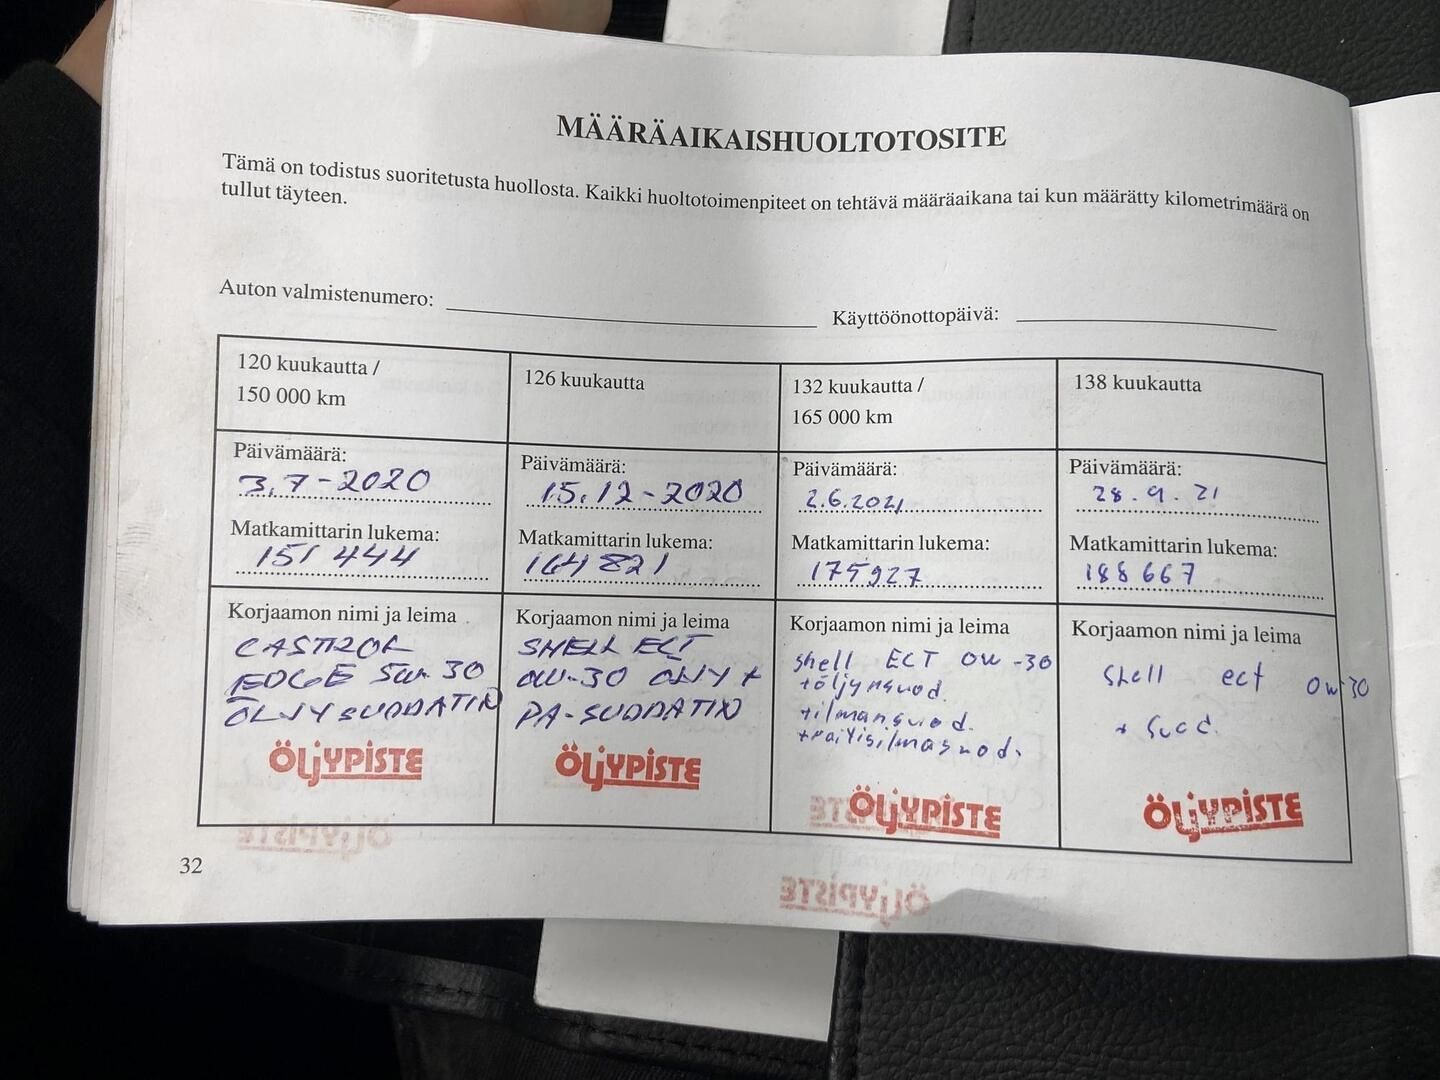 MÄÄRÄAIKAISHUOLTOTOSITE
Tämä on todistus suoritetusta huollosta. Kaikki huoltotoimenpiteet on tehtävä määräaikana tai kun määrätty kilometrimäärä on
tullut täyteen.
Auton valmistenumero:
Käyttöönottopäivä:
120 kuukautta /
150 000 km
126 kuukautta
132 kuukautta /
165 000 km
138 kuukautta
Päivämäärä:
3.7-2020
Päivämäärä:
15.12-2020
Päivämäärä:
2.6.2021
Päivämäärä:
28.9.21
Matkamittarin lukema:
151 444
Matkamittarin lukema:
164 821
Matkamittarin lukema:
175927
Matkamittarin lukema:
188 667
Korjaamon nimi ja leima
CASTROL
EDGE 5w-30
ÖLJYSUODATIN
ÖLJYPISTE
Korjaamon nimi ja leima
SHELL ECT
0W-30 ÖLJY +
PA-SUODATIN
ÖLJYPISTE
Korjaamon nimi ja leima
shell ECT 0W-30
+öljynsuod.
+ilmansuod.
+raitisilmasuod.
ÖLJYPISTE
Korjaamon nimi ja leima
Shell ect 0w-30
+ suod.
ÖLJYPISTE
32